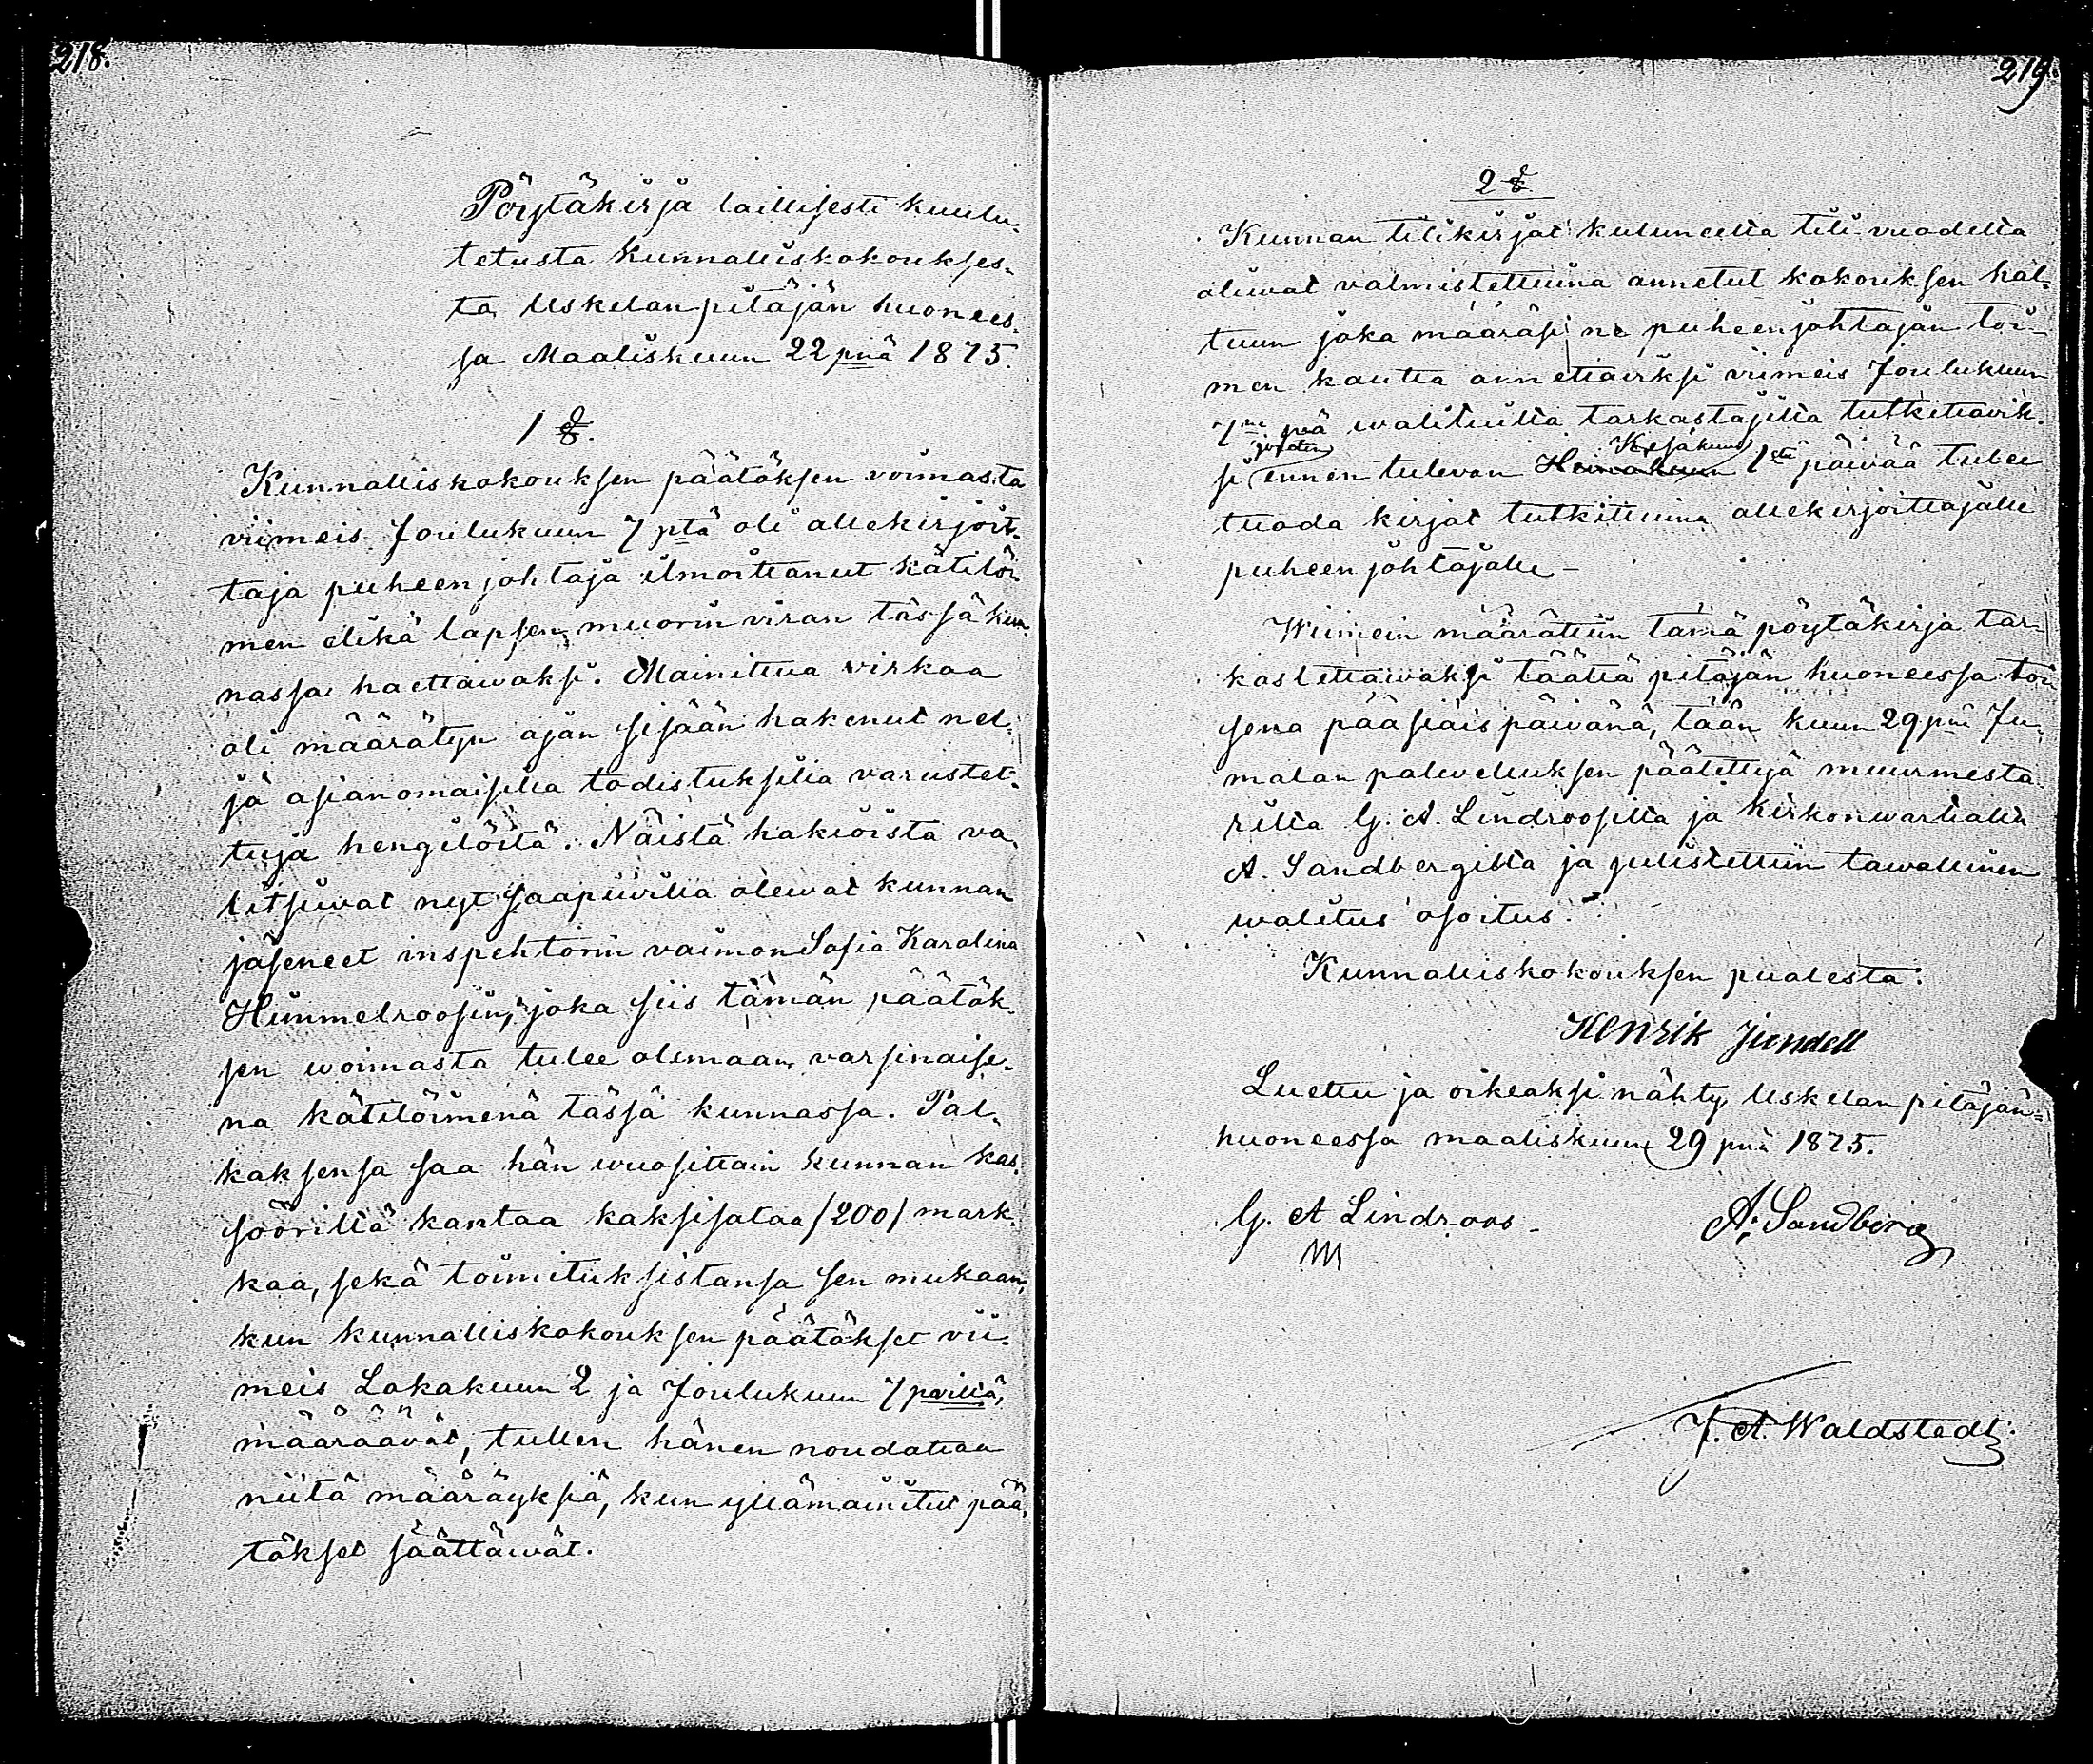 218.
Pöytäkirja laillisesti kuulu-
tetusta Kunnalliskokoukses-
ta Uskelan pitäjän huonees-
sa Maaliskuun 22 pnä 1875.
1 §.
Kunnalliskokouksen päätöksen voimasta
viimeis Joulukuun 7 ptä oli allekirjoit-
taja puheenjohtaja ilmoittanut kätilöi
men elikä lapsen muorin viran tässä kun-
nassa haettawaksi. Mainittua virkaa
oli määrätyn ajan sisään hakenut nel-
jä asianomaisilla todistuksilla varustet-
tuja hengilöitä. Näistä hakiöista va-
litsiwat nyt saapuvilla olewat kunnan
jäseneet inspehtorin vaimon Sofia Karolina
Himmelroosin, joka siis tämän päätök-
sen woimasta tulee olemaan varsinaise-
na kätilöimenä tässä kunnassa. Pal-
kaksensa saa hän wuosittain kunnan kas-
söörillä kantaa kaksisataa /200/ mark-
kaa, sekä toimituksistansa sen mukaan,
kun kunnalliskokouksen päätökset vii-
meis Lokakuun 2 ja Joulukuun 7 pvillä,
määräävät, tullen hänen noudattaa
niitä määräyksiä, kun yllämainitut pää-
tökset säättäwät.
219.
2 §
Kunnan tilikirjat kuluneelta tili-vuodelta
oliwat valmistettuina annetut kokouksen hal-
tuun joka määräsi ne puheenjohtajan toi-
men kautta annettaviksi viimeis Joulukuun
7 nä pvä walituilta tarkastajilta tutkittavik-
si joiden ennen tulevan Heinäkuun Kesäkuun 1 stä päiwää tulee
tuoda kirjat tutkittuina allekirjoittajalle
puheenjohtajalle –
Wiimein määrättiin tämä pöytäkirja tar-
kastettawaksi täältä pitäjän huoneessa toi
sena pääsiäispäivänä, tään kuun 29 pnä Ju-
malan palveluksen päätettyä muurmesta-
rilta G. A. Lindroosilta ja kirkonwartialta
A. Sandbergilta ja julistettiin tawallinen
walitus osoitus.
Kunnalliskokouksen puolesta:
Henrik Jundell
Luettu ja oikeaksi nähty Uskelan pitäjän=
huoneessa maaliskuun 29 pnä 1875.
G. A Lindroos –
A. Sandberg
J. A. Waldstedt.